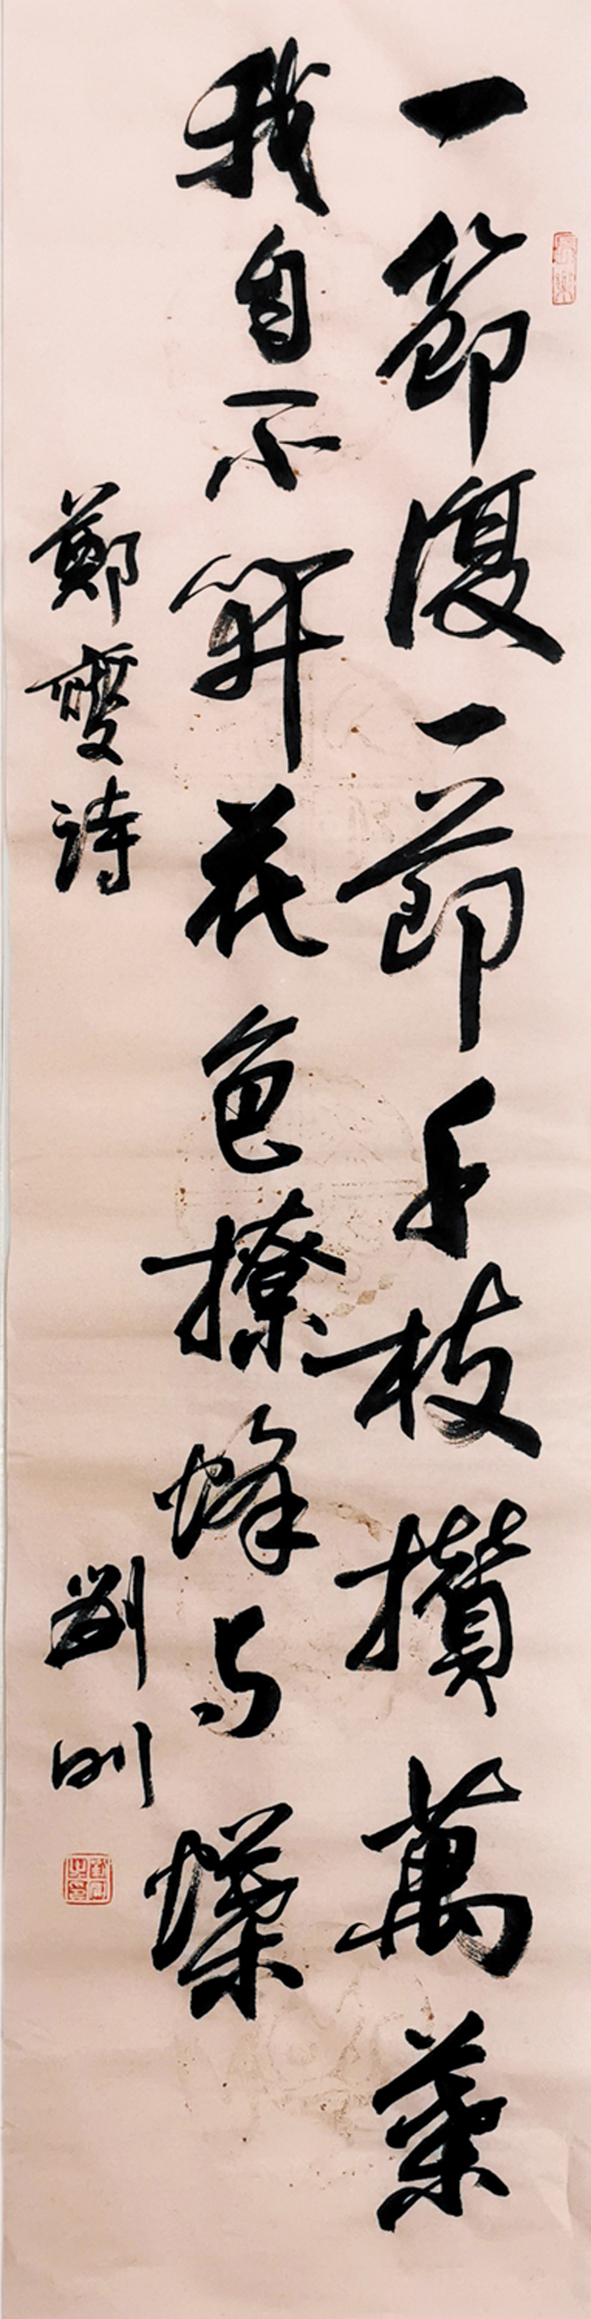 一節復一節千枝攢萬葉
我自不開花免撩蜂与蝶
鄭燮詩
劉